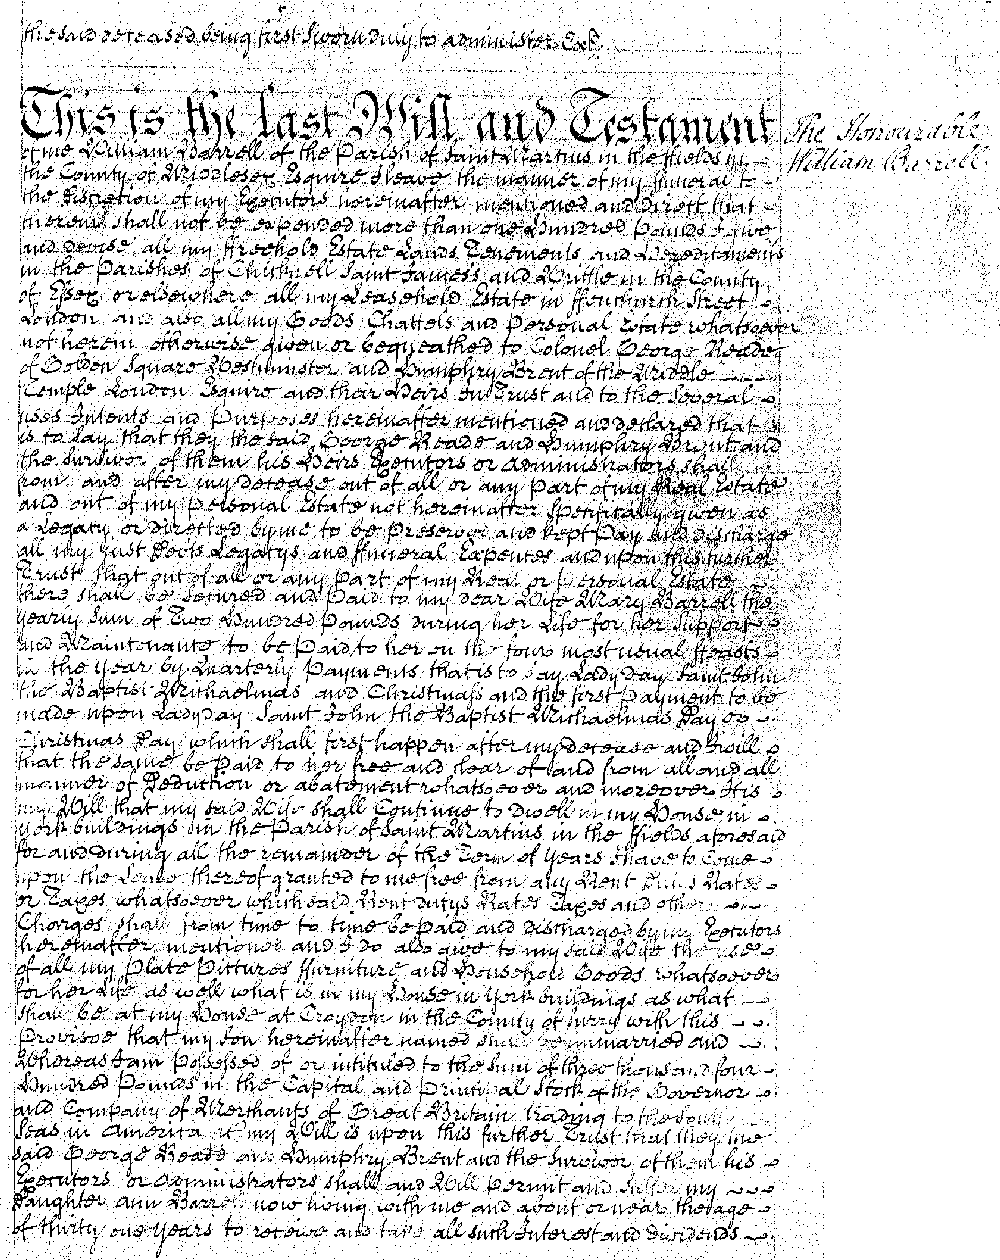 the said deceased being first Sworn duly to administer Exd
This is the last Will and Testament
The Honourable
William Barrell
of me William Barrell of the Parish of Saint Martins in the ffields in
the County of Middlesex Esquire I leave the manner of my ffuneral to
the discretion of my Executors hereinafter mentioned and direct that
therein shall not be expended more than one Hundred Pounds I give
and devise all my ffreehold Estate Lands Tenements and Hereditaments
in the Parishes of Saint James's and Writtle in the County
of Essex or elsewhere all my Leasehold Estate in ffenchurch Street
London and also all my Goods Chattels and Personal Estate whatsoever
not herein otherwise given or bequeathed to Colonel George Reade
of Golden Square Westminster and Humphry Brent of the Middle
Temple London Esquire and their Heirs In Trust and to the several
uses Intents and Purposes hereinafter mentioned and declared that
is to say that they the said George Reade and Humphry Brent and
the Survivor of them his Heirs Executors or Administrators shall
from and after my decease out of all or any Part of my Real Estate
and out of my Personal Estate not hereinafter specifically given as
a Legacy or directed by me to be preserved and kept Pay and discharge
all my just Debts Legacys and ffuneral Expences and upon this further
Trust that out of all or any Part of my Real or Personal Estate
there shall be secured and Paid to my dear Wife Mary Barrell the
yearly Sum of Two Hundred Pounds during her Life for her Support
and Maintenance to be Paid to her on the four most usual ffeasts
in the year by Quarterly Payments that is to say Lady Day Saint John
the Baptist Michaelmas and Christmass and the first Payment to be
made upon Lady Day Saint John the Baptist Michaelmas Day or
Christmas Day which shall first happen after my decease and I will
that the same be Paid to her free and clear of and from all and all
manner of Deduction or abatement whatsoever and moreover it is
my Will that my said Wife shall Continue to dwell in my House in
York buildings in the Parish of Saint Martins in the ffields aforesaid
for and during all the remainder of the Term of Years I have to Come
upon the Lease thereof granted to me free from any Rent Dutys Rates
or Taxes whatsoever which said Rent dutys Rates Taxes and other
Charges shall from time to time be Paid and discharged by my Executors
hereinafter mentioned and I do also give to my said Wife the use
of all my Plate Pictures ffurniture and Household Goods whatsoever
for her Life as well what is in my House in York buildings as what
shall be at my House at Croydon in the County of Surry with this
Provisoe that my Son hereinafter named shall be unmarried and
Whereas I am Possessed of or intituled to the Sum of three thousand four
Hundred Pounds in the Capital and Principal Stock of the Governor
and Company of Merchants of Great Britain trading to the South
Seas in America it my Will is upon this further Trust that they the
said George Reade and Humphry Brent and the Survivor of them his
Executors or Administrators shall and Will Permit and Suffer my
Daughter Ann Barrell now living with me and about or near the age
of thirty one years to receive and take all such Interest and Dividends